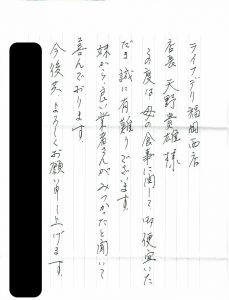 ライフデリ福岡西店
店長 天野貴雄様
この度は母の食事に関して御便宜いた
だき誠に有難うございます。
妹から、良い業者さんがみつかったと聞いて
喜んでおります。
今後共よろしくお願い申し上げます。